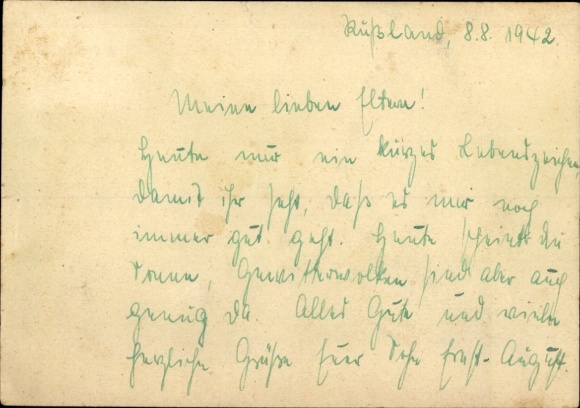 Rußland, 8.8.1942.
Meine lieben Eltern!
Heute nur ein kurzes Lebenszeichen,
damit ihr seht, daß es mir noch
immer gut geht. Heute scheint die
Sonne, Gewitterwolken sind aber auch
genug da. Alles Gute und viele
herzliche Grüße Euer Sohn Ernst-August.